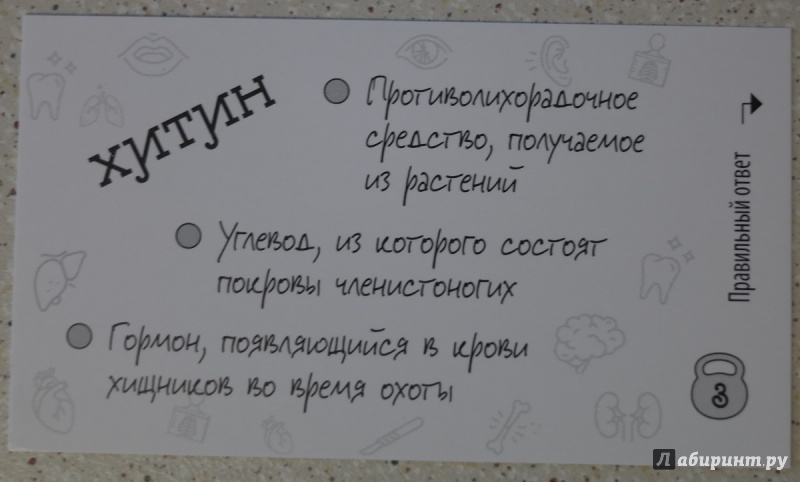 хитин
Противолихорадочное
средство, получаемое
из растений
Углевод, из которого состоят
покровы членистоногих
Гормон, появляющийся в крови
хищников во время охоты
Правильный ответ
3
Лабиринт.ру